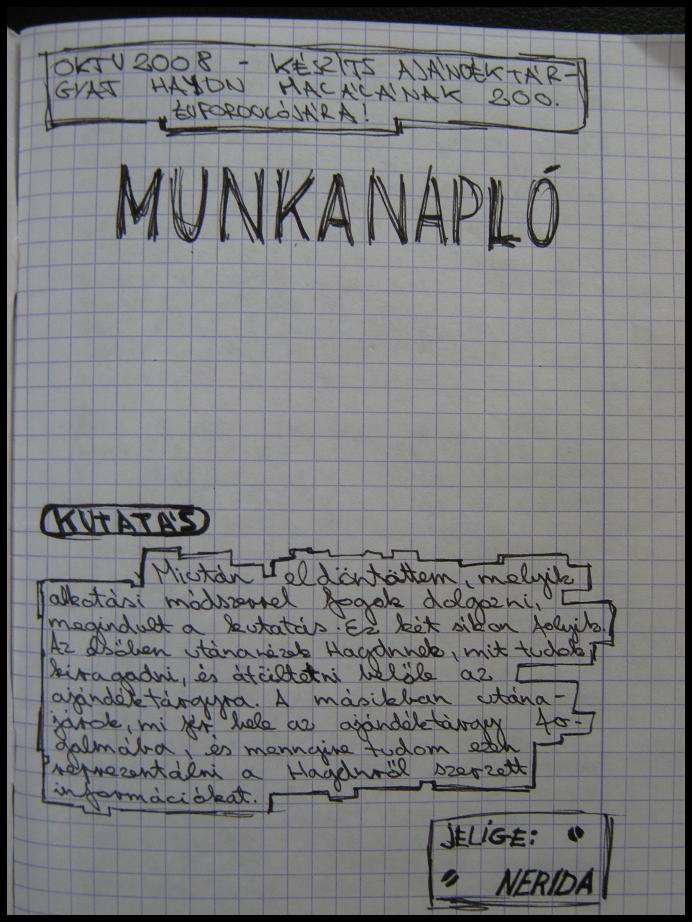 OKTV 2008 - KÉSZÍTS AJÁNDÉKTÁR-
GYAT HAYDN HALÁLÁNAK 200.
ÉVFORDULÓJÁRA!
MUNKANAPLÓ
KUTATÁS
Miután eldöntöttem, melyik
alkotási módszerrel fogok dolgozni,
megindult a kutatás. Ez két síkon folyik.
Az elsőben utánanézek Haydnnek, mit tudok
kiragadni, és átültetni belőle az
ajándéktárgyra. A másikban utána-
járok, mi fér bele az ajándéktárgy fo-
galmába, és mennyire tudom ezt
reprezentálni a Haydnről szerzett
információkat.
JELIGE:
NERIDA